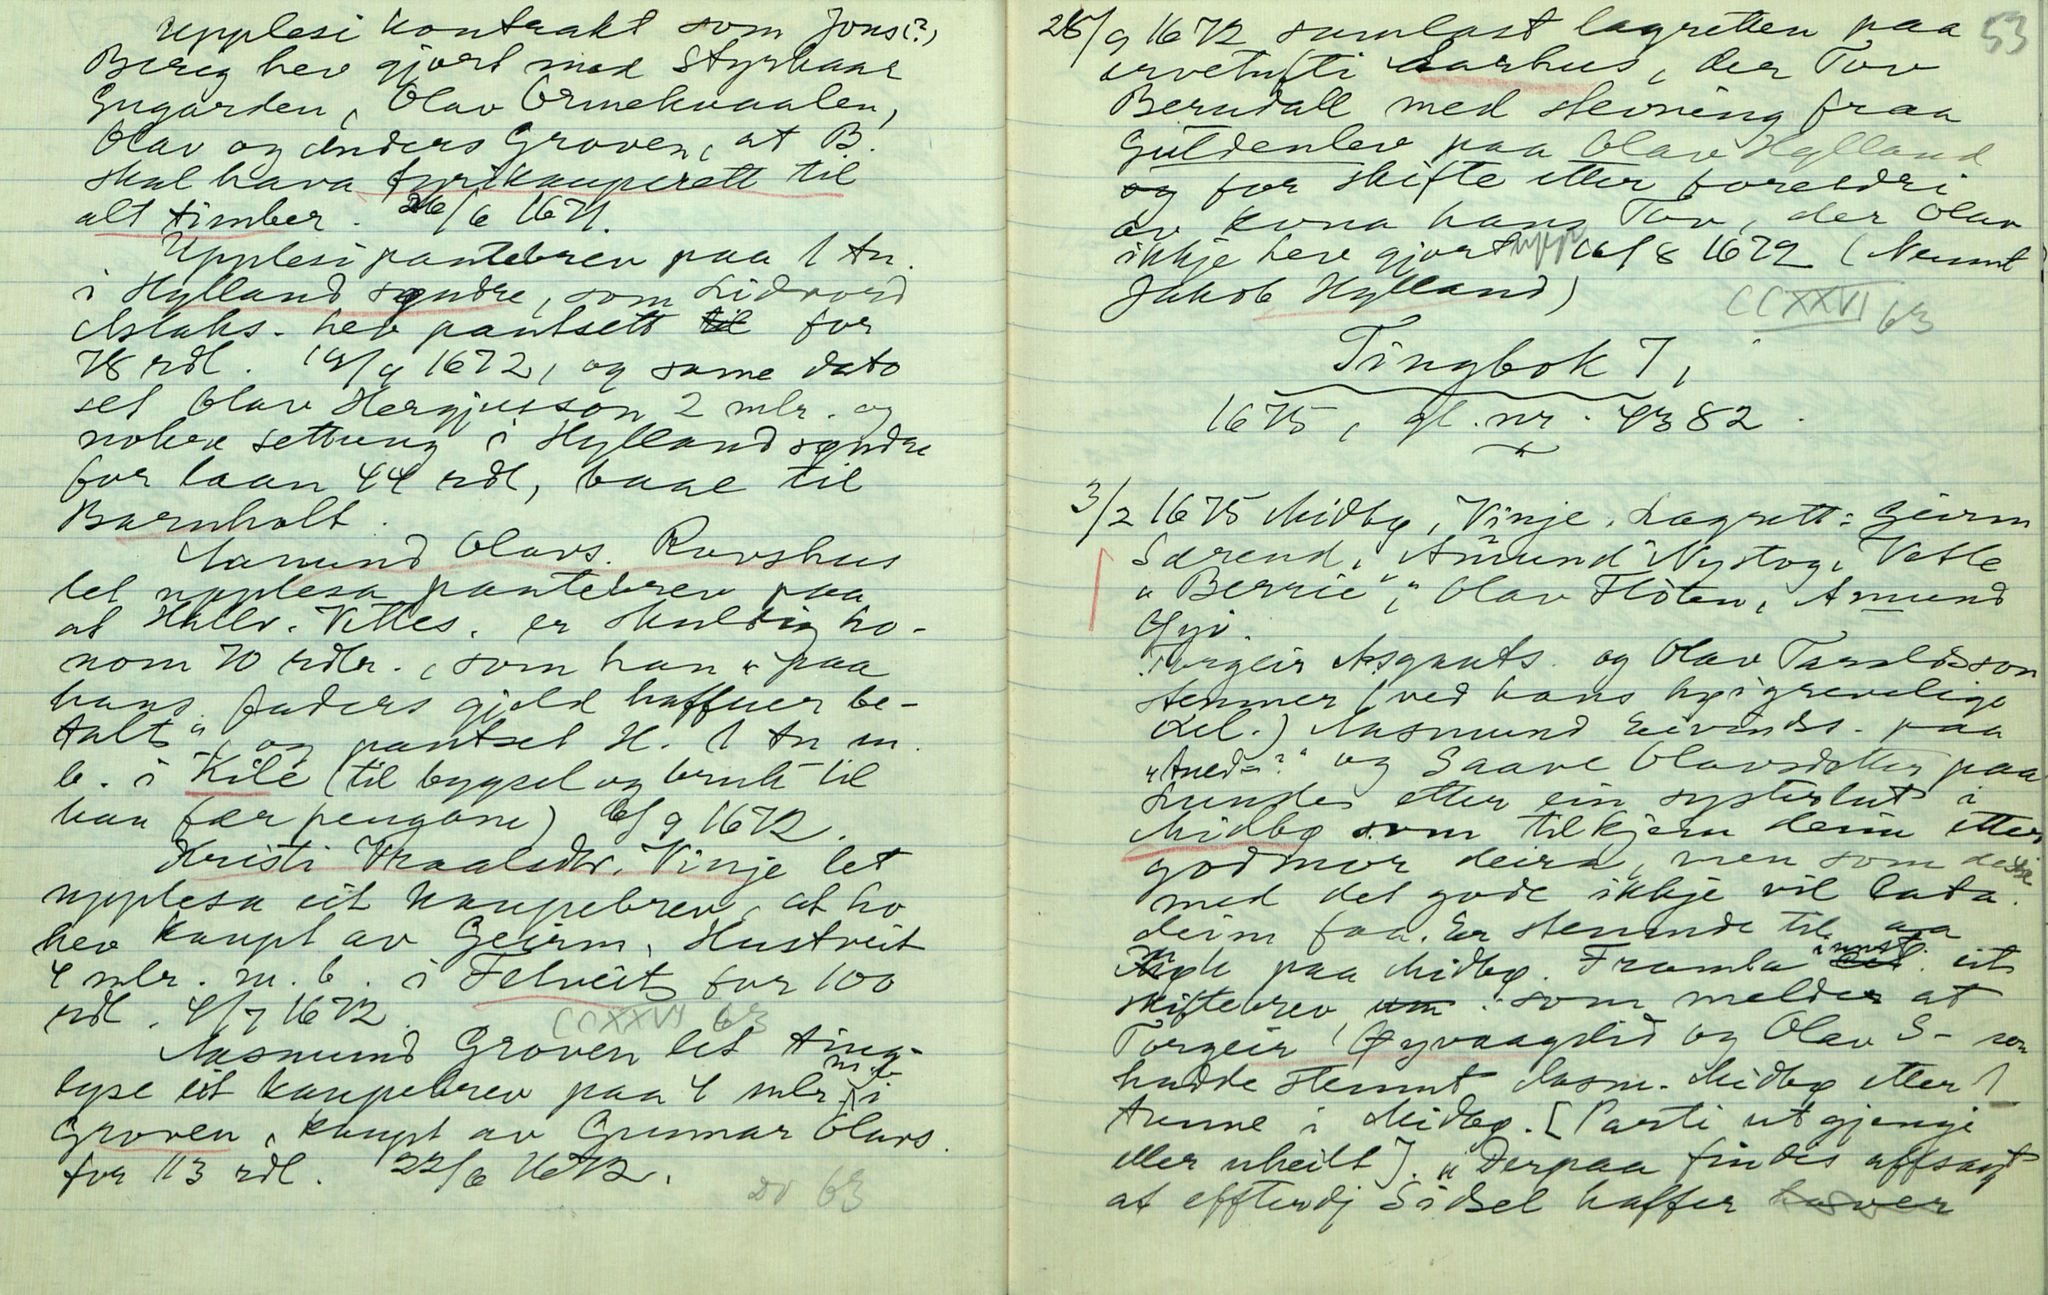 Upplesi kontrakt som Jons(?)
Bereg hev gjort med Styrkaar
Gugarden, Olav Ormekvaalen,
Olav og Anders Groven, at B.
skal hava fyrikauperett til
alt timber. 26/6 1671.
Upplesi pantebrev paa 1 tn.
i Hylland søndre, som Lidvord
Aslaks. hev pantsett til for
78 rdl. 19/9 1672, og same dato
set Olav Hergjusson 2 mlr. og
nokre settung i Hylland søndre
for laan 44 rdl, baae til
Barnholt.
Aamund Olavs. Rovshus
let upplesa pantebrev paa
at Hallv. Vetles. er skuldig ho-
nom 70 rdlr., som han "paa
hans faders gjeld haffuer be-
talt", og pantset H. 1 tn m.
b. i Kile (til bygsel og bruk til
han fær pengane) 6/9 1672.
Kristi Vraalsdtr. Vinje let
upplesa eit kaupebrev, at ho
hev kaupt av Geirm. Hustveit
4 mlr. m. b. i Felveit for 100
rdl. 4/7 1672.
CCXXVI 63
Aasmund Groven let ting-
lyse eit kaupebrev paa 4 mlr m. b. i
Groven, kaupt av Gunnar Olavs.
for 113 rdl. 22/6 1672.
Do 63
53
26/9 1672 samlast lagretten paa
ervetufti Aarhus, der Tov
Berudall med stevning fraa
Güldenlev paa Olav Hylland
og for skifte etter foreldri
av kona hans Tov, der Olav
ikkje hev gjort upp 16/8 1672 (Nemnt
Jakob Hylland)
CCXXVI 63
Tingbok 7,
1675, gl. nr. 4382.
3/2 1675 Midbø, Vinje. Lagrett: Geirm
Særend, Amund Nystog, Vetle
"Berrie", Olav Flöten, Amund
Ofyi.
Torgeir Asgauts. og Olav Taraldsson
stemner (ved hans høigrevelige
Zel.) Aasmund Eivinds. paa
"Aned=?" og Saave Olavsdotter paa
Lunde etter ein systerlut i
Midbø som tilkjem deim etter
godmor deira, men som desse
med det gode ikkje vil lata
deim faa. Er stemnde til aa
møte paa Midbø. Framla innst. eit
skiftebrev, um: som melder at
Torgeir Øyvaagslid og Olav S- son
hadde stemnt Aasm. Midbø etter 1
tunne i Midbø. [Parti utgjenge
eller uheilt]. "Derpaa findes affsagt
at effterdj Sidsel haffer haver